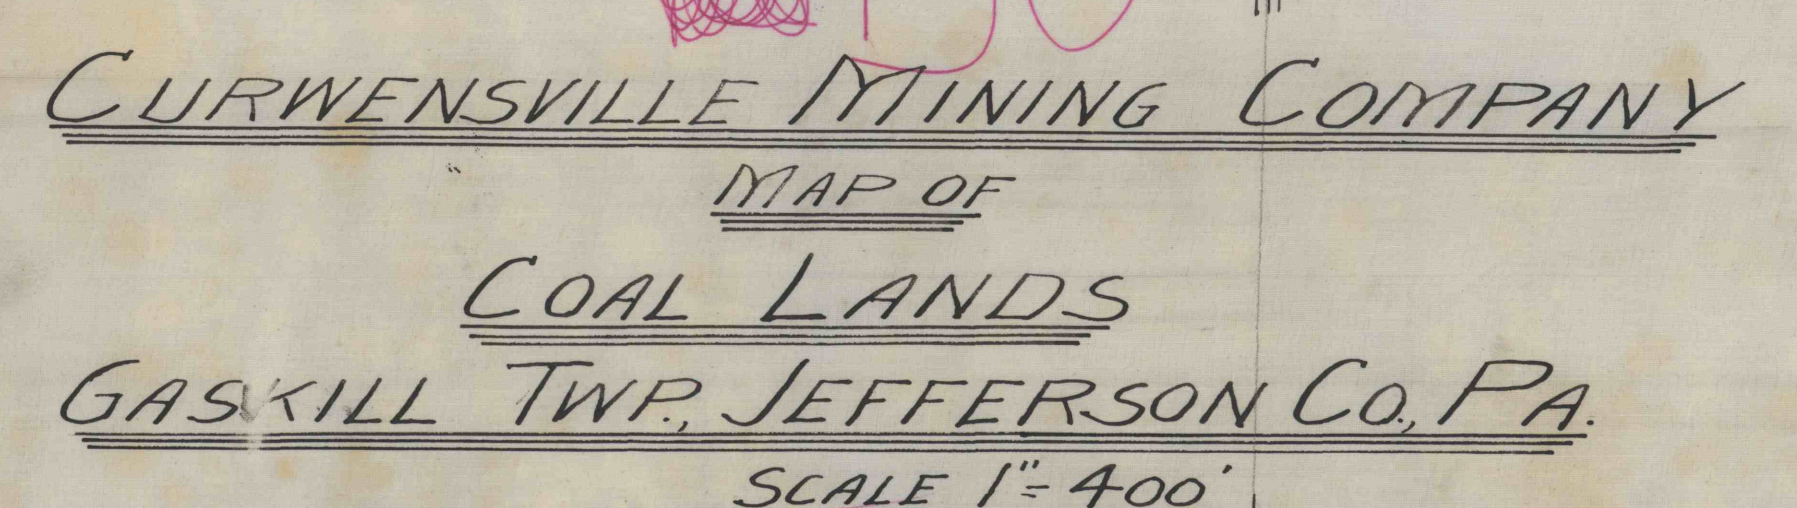 CURWENSVILLE MINING COMPANY
MAP OF
COAL LANDS
GASKILL TWP., JEFFERSON CO., PA.
SCALE 1"=400'